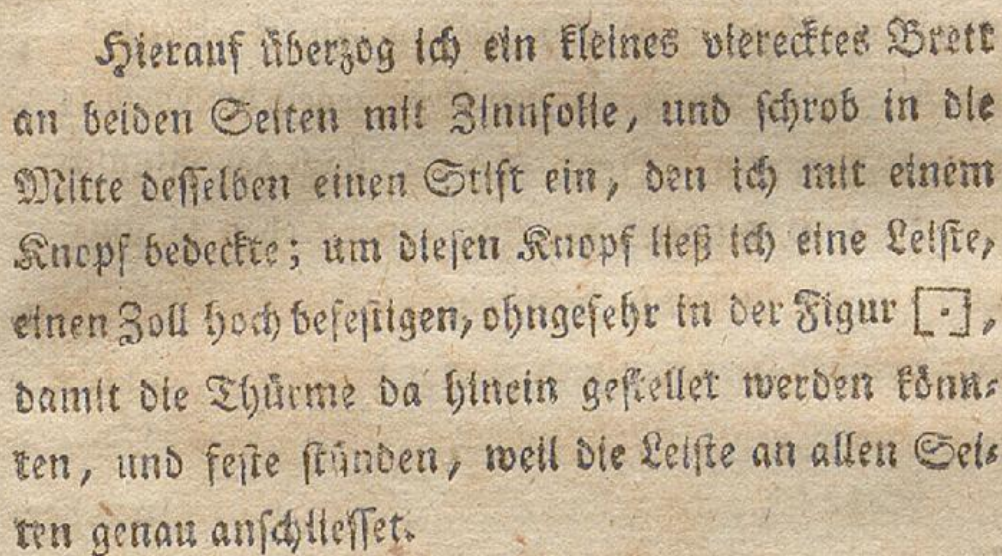 Hierauf überzog ich ein kleines vierecktes Brett
an beiden Seiten mit Zinnfolie, und schrob in die
Mitte desselben einen Stift ein, den ich mit einem
Knopf bedeckte; um diesen Knopf ließ ich eine Leiste,
einen Zoll hoch befestigen, ohngefehr in der Figur [·],
damit die Thürme da hinein gestellet werden könn-
ten, und feste stünden, weil die Leiste an allen Sei-
ten genau anschliesset.